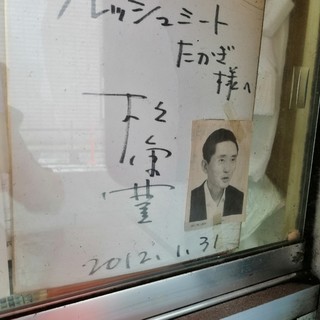 フレッシュミート
たかぎ
様へ
2012.1.31